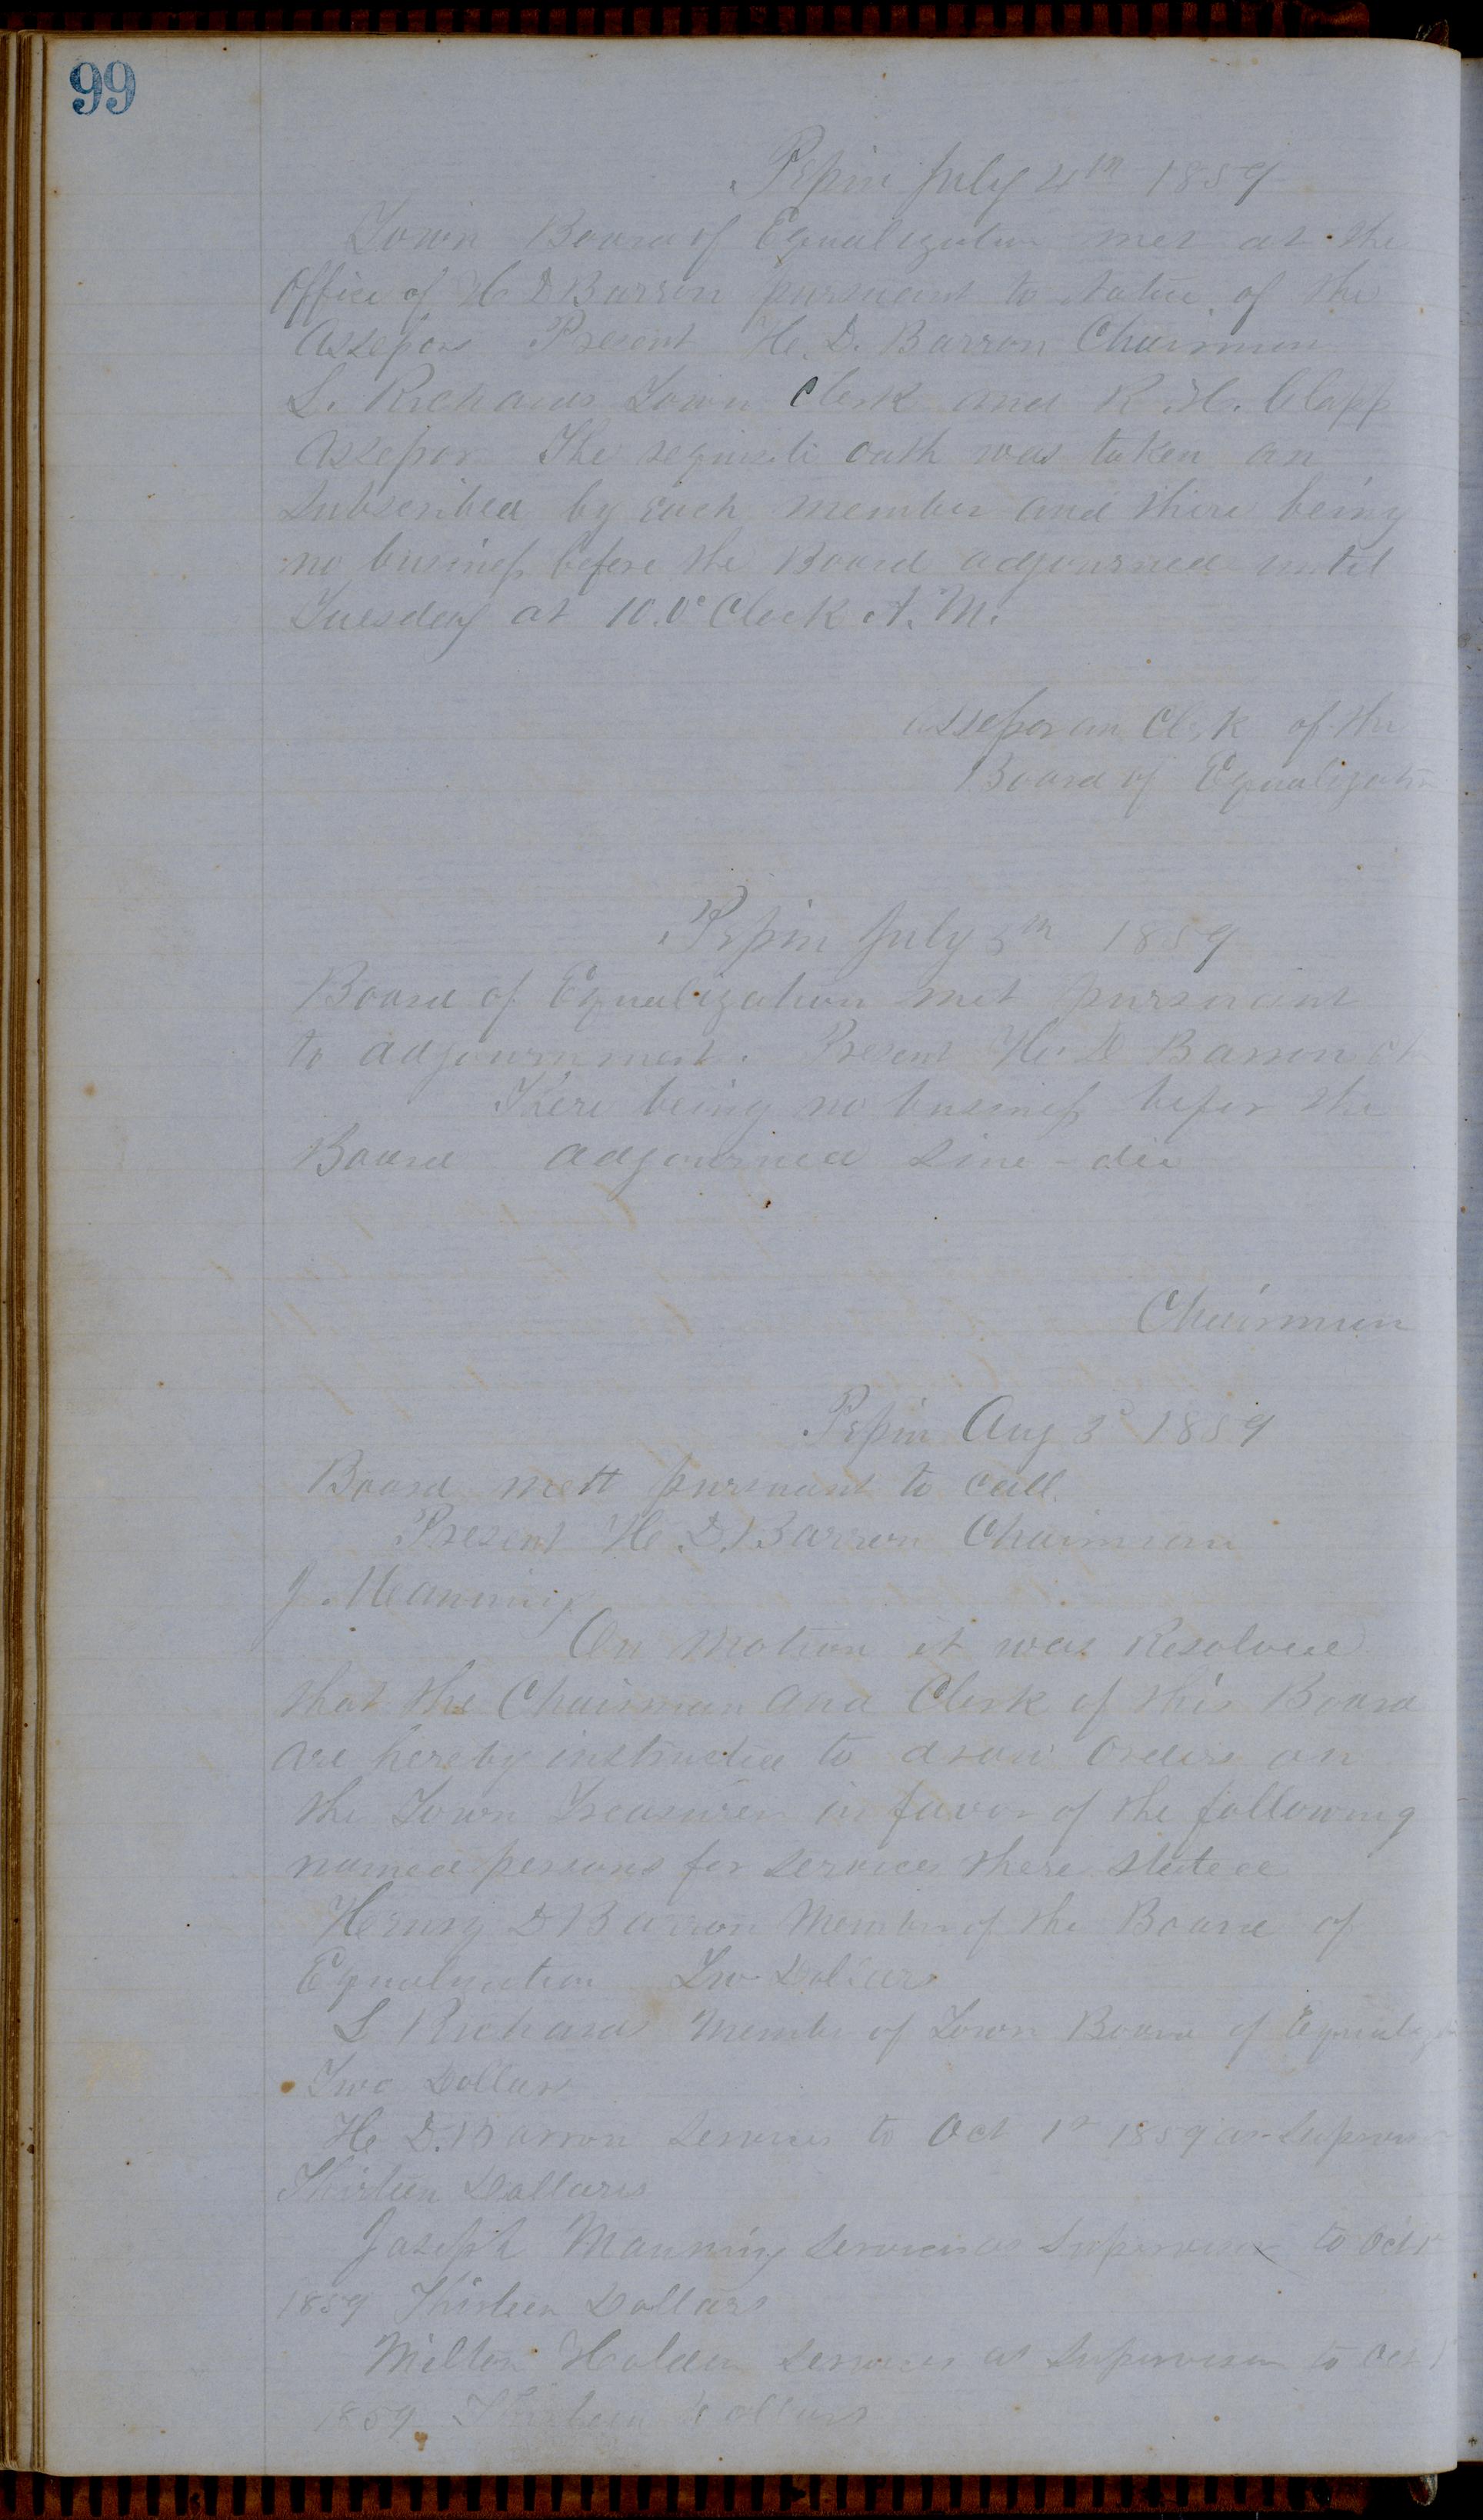 99
Pepin July 4th 1859
Town Board of Equalization met at the
Office of H D Barron pursuant to Notice of the
Assessors Present H. D. Barron Chairman
L. Richards Town Clerk and R. H. Clapp
Assessor The requisite oath was taken an
subscribed by each member and there being
no business before the Board adjourned until
Tuesday at 10.O'Clock A.M.
Assessor an Clerk of the
Board of Equalization
Pepin July 5th 1859
Board of Equalization met pursuant
to adjournment. Present H. D Barron
There being no business befor the
Board adjourned Sine-die
Chairman
Pepin Aug 3d 1859
Board mett pursuant to call.
Present H. D. Barron Chairman
J. Manning
On motion it was Resolved
that the Chairman and Clerk of this Board
are hereby instructed to draw orders on
the Town Treasurer in favor of the following
named persons for services there stated
Henry D Barron Member of the Board of
Equalization Two Dollars
L Richards Member of Town Board of Equaliz
Two Dollars
H. D. Barron services to Oct 1st 1859 as Supervis
Thirteen Dollars
Joseph Manning services as Supervisor to Oct 1st
1859 Thirteen Dollars
Milton Holden services as Supervisor to Oct 1
1859 Thirteen Dollars